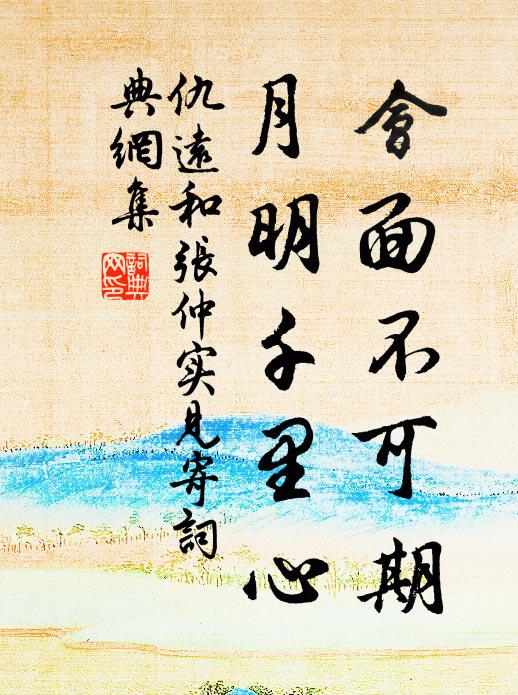 會面不可期
月明千里心
仇遠和張仲实見寄詞
典網集
詞典網印